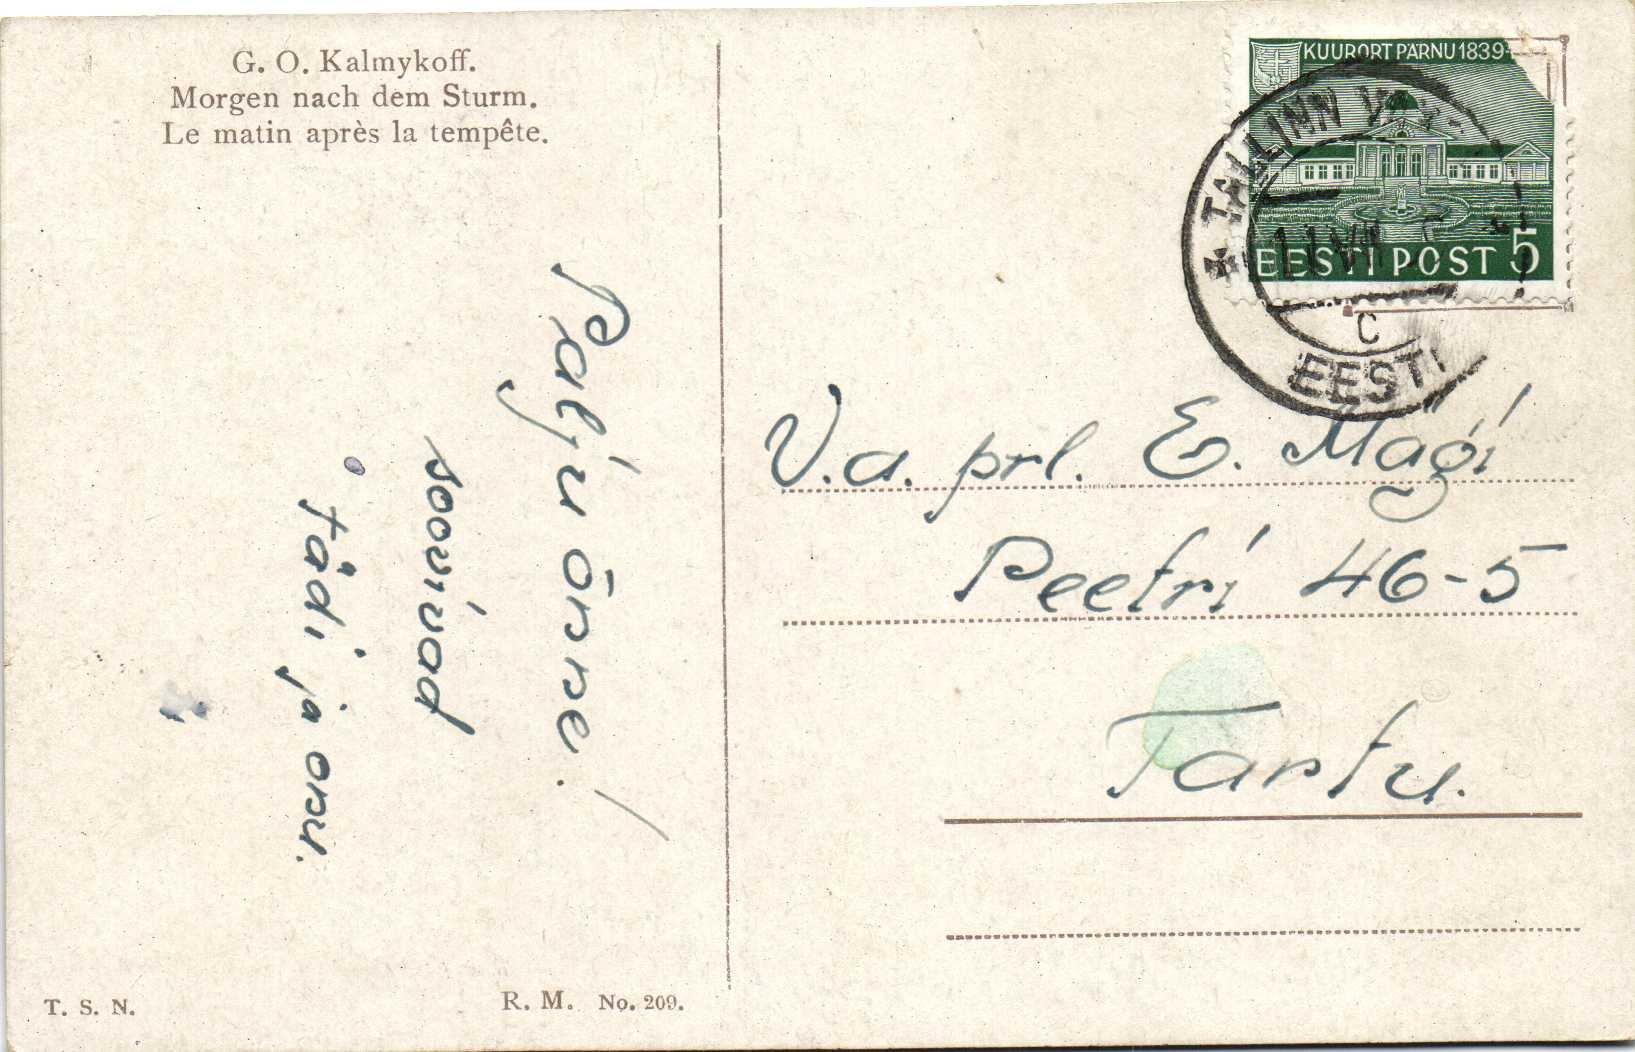 G. O. Kalmykoff.
Morgen nach dem Sturm.
Le matin après la tempête.
KUURORT PÄRNU 1839-
EESTI POST 5
TALLINN
C
EESTI
Palju õnne!
soovivad
tädi ja onu.
V.a. prl. E. Mägi
Peetri 46-5
Tartu.
T. S. N.
R. M. No. 209.